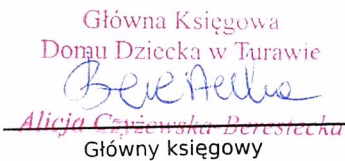 Główna Księgowa
Domu Dziecka w Turawie
Alicja Czyżewska-Berestecka
Główny księgowy